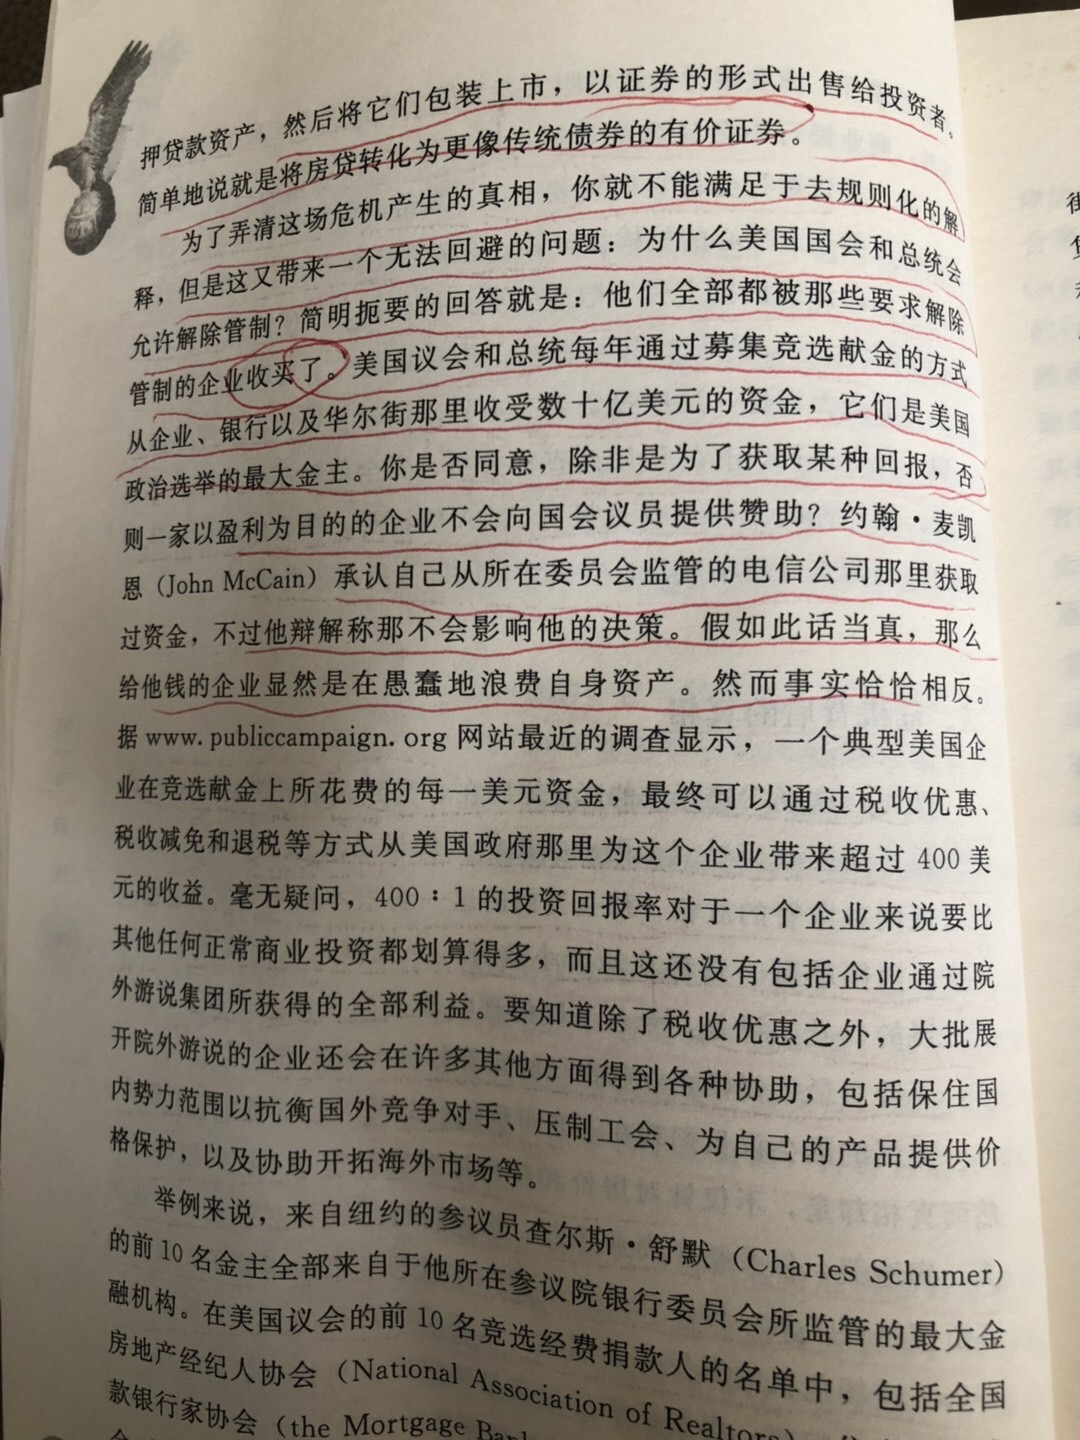 押贷款资产，然后将它们包装上市，以证券的形式出售给投资者。
简单地说就是将房贷转化为更像传统债券的有价证券。
为了弄清这场危机产生的真相，你就不能满足于去规则化的解
释，但是这又带来一个无法回避的问题：为什么美国国会和总统会
允许解除管制？简明扼要的回答就是：他们全部都被那些要求解除
管制的企业收买了。美国议会和总统每年通过募集竞选献金的方式
从企业、银行以及华尔街那里收受数十亿美元的资金，它们是美国
政治选举的最大金主。你是否同意，除非是为了获取某种回报，否
则一家以盈利为目的的企业不会向国会议员提供赞助？约翰·麦凯
恩（John McCain）承认自己从所在委员会监管的电信公司那里获取
过资金，不过他辩解称那不会影响他的决策。假如此话当真，那么
给他钱的企业显然是在愚蠢地浪费自身资产。然而事实恰恰相反。
据 www.publiccampaign.org 网站最近的调查显示，一个典型美国企
业在竞选献金上所花费的每一美元资金，最终可以通过税收优惠、
税收减免和退税等方式从美国政府那里为这个企业带来超过 400 美
元的收益。毫无疑问，400：1 的投资回报率对于一个企业来说要比
其他任何正常商业投资都划算得多，而且这还没有包括企业通过院
外游说集团所获得的全部利益。要知道除了税收优惠之外，大批展
开院外游说的企业还会在许多其他方面得到各种协助，包括保住国
内势力范围以抗衡国外竞争对手、压制工会、为自己的产品提供价
格保护，以及协助开拓海外市场等。
举例来说，来自纽约的参议员查尔斯·舒默（Charles Schumer）
的前 10 名金主全部来自于他所在参议院银行委员会所监管的最大金
融机构。在美国议会的前 10 名竞选经费捐款人的名单中，包括全国
房地产经纪人协会（National Association of Realtors）
款银行家协会（the Mortgage